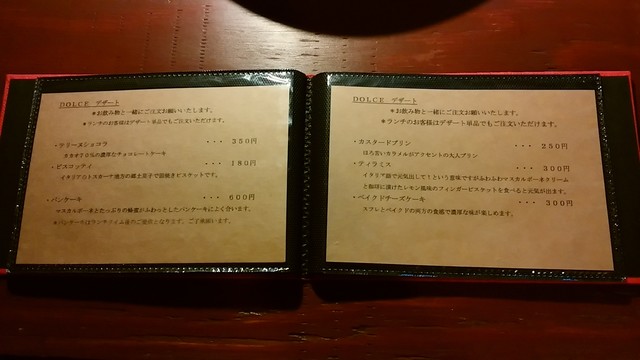 DOLCE デザート
＊お飲み物と一緒にご注文お願いいたします。
＊ランチのお客様はデザート単品でもご注文いただけます。
・テリーヌショコラ ・・・ 350円
カカオ70％の濃厚なチョコレートケーキ
・ビスコッティ ・・・ 180円
イタリアのトスカーナ地方の郷土菓子で固焼きビスケットです。
・パンケーキ ・・・ 600円
マスカルポーネとたっぷりの蜂蜜がふわっとしたパンケーキによく合います。
＊パンケーキはランチタイム後のご提供となります。ご了承願います。
DOLCE デザート
＊お飲み物と一緒にご注文お願いいたします。
＊ランチのお客様はデザート単品でもご注文いただけます。
・カスタードプリン ・・・ 250円
ほろ苦いカラメルがアクセントの大人プリン
・ティラミス ・・・ 300円
イタリア語で元気出して！という意味ですがふわふわマスカルポーネクリーム
と珈琲に漬けたレモン風味のフィンガービスケットを食べると元気が出ます。
・ベイクドチーズケーキ ・・・ 300円
スフレとベイクドの両方の食感で濃厚な味が楽しめます。